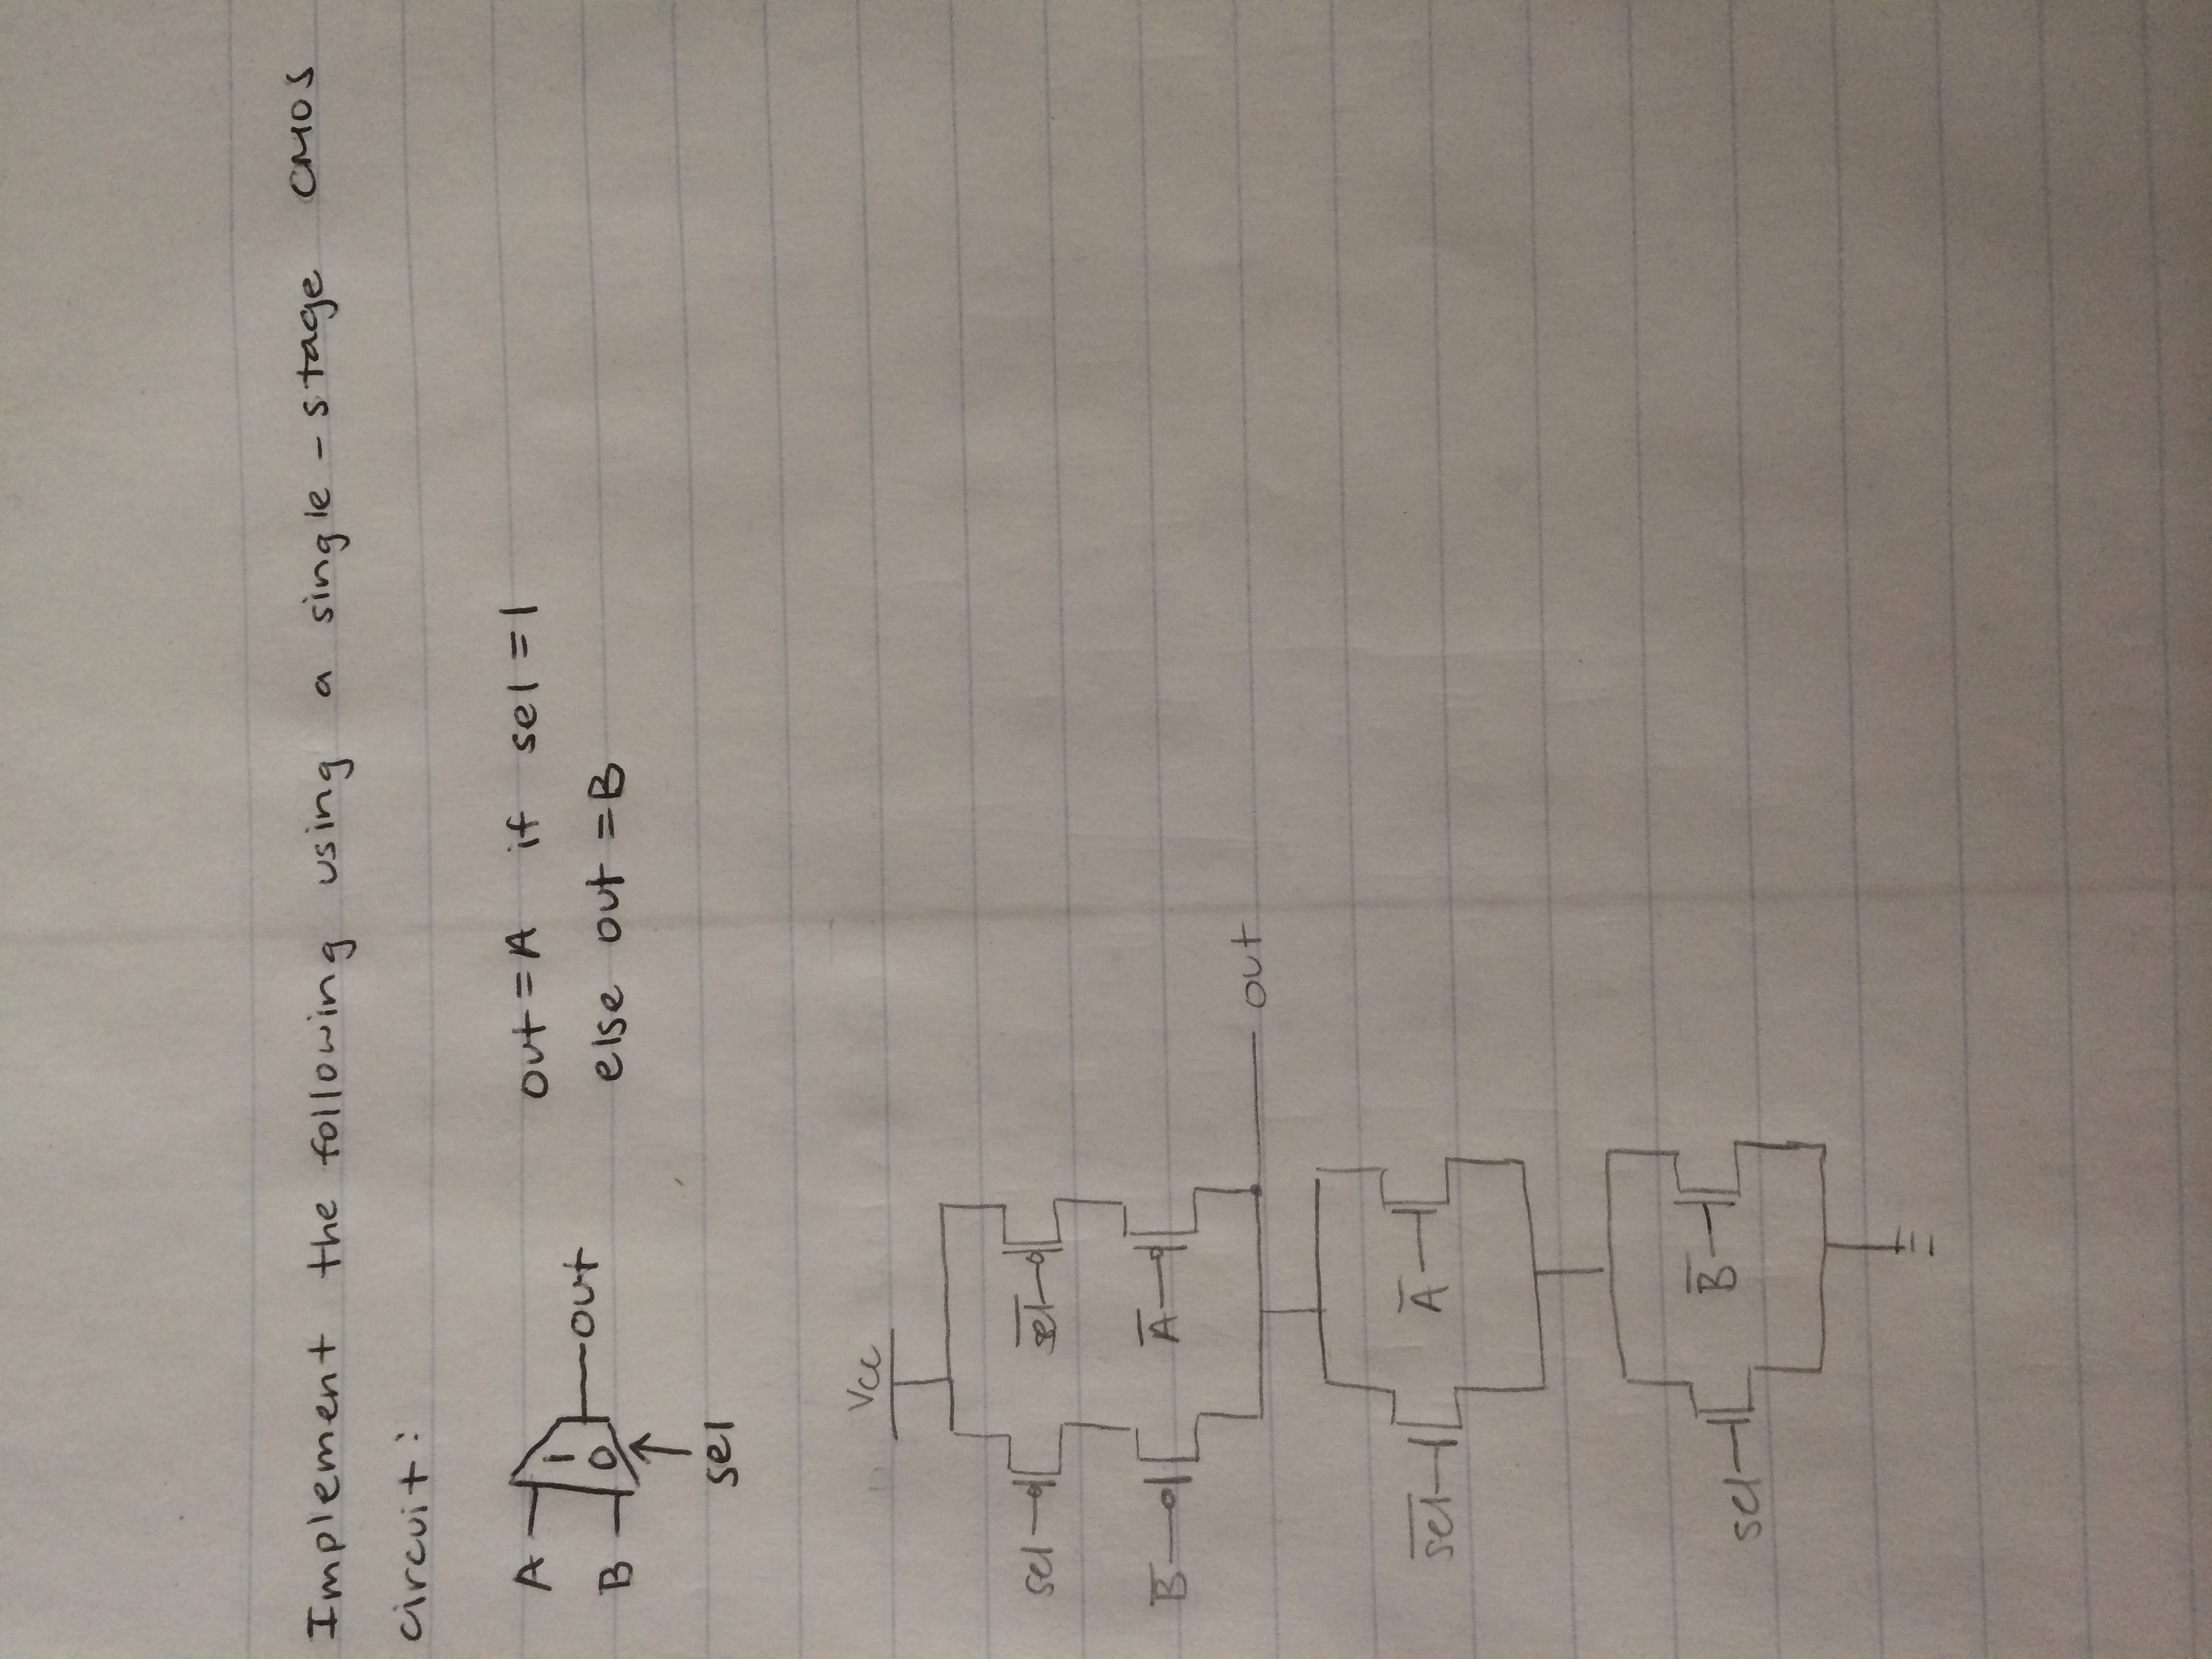 Implement the following using a single-stage CMOS
circuit:
A
1
out
0
B
sel
out = A if sel = 1
else out = B
Vcc
sel
s̅e̅l̅
B̅
A̅
out
s̅e̅l̅
A̅
sel
B̅